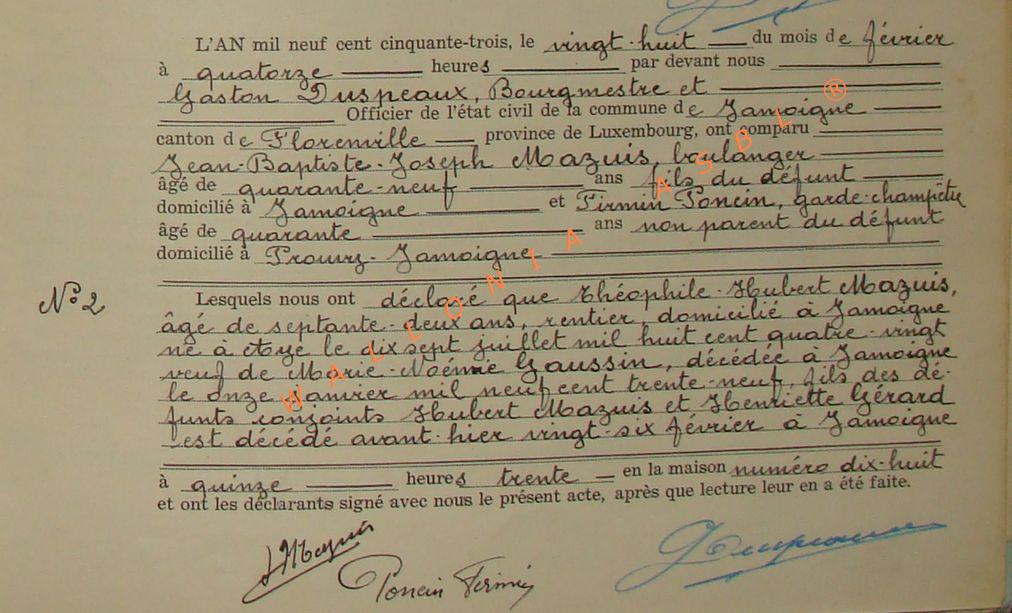 L'AN mil neuf cent cinquante-trois, le vingt-huit du mois de février
à quatorze heures par devant nous
Gaston Duspeaux, Bourgmestre et
Officier de l'état civil de la commune de Jamoigne
canton de Florenville province de Luxembourg, ont comparu
Jean-Baptiste-Joseph Mazuis, boulanger
âgé de quarante-neuf ans fils du défunt
domicilié à Jamoigne et Firmin Poncin, garde-champêtre
âgé de quarante ans non parent du défunt
domicilié à Prouvy-Jamoigne
N° 2
Lesquels nous ont déclaré que Théophile-Hubert Mazuis,
âgé de septante-deux ans, rentier, domicilié à Jamoigne
né à Aye le dix sept juillet mil huit cent quatre-vingt
veuf de Marie-Noémie Gaussin, décédée à Jamoigne
le onze janvier mil neuf cent trente-neuf, fils des dé-
funts conjoints Hubert Mazuis et Henriette Gérard
est décédé avant-hier vingt-six février à Jamoigne
à quinze heures trente en la maison numéro dix-huit
et ont les déclarants signé avec nous le présent acte, après que lecture leur en a été faite.
JMazuis
Poncin Firmin
WALLONIA ASBL ®